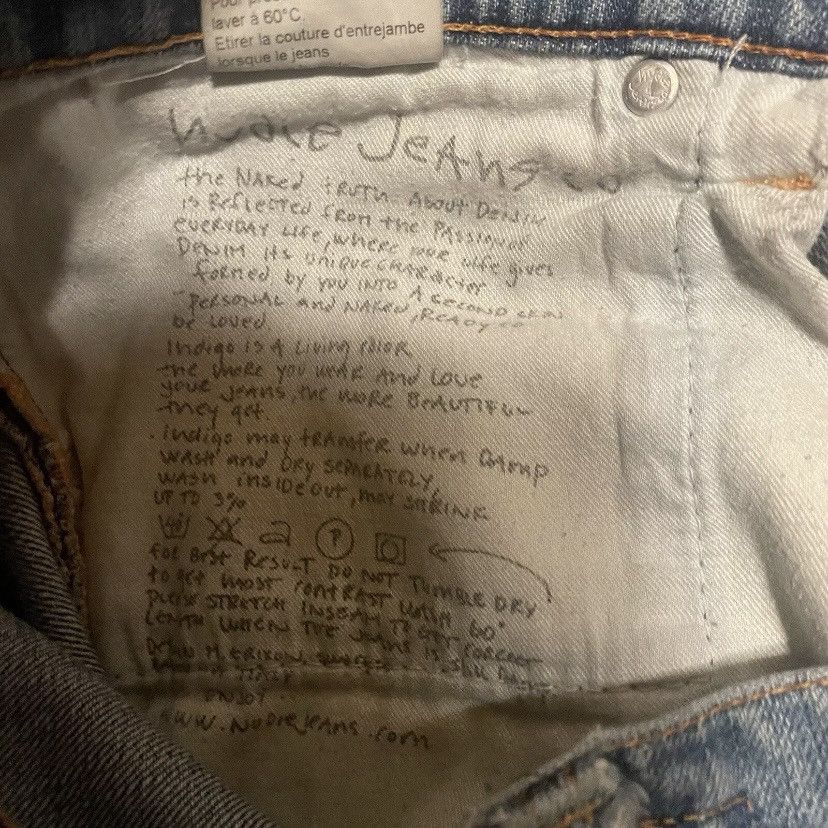 laver à 60°C
Etirer la couture d'entrejambe
lorsque le jeans
Nudie Jeans co
the NAKED tRUTH About DENIM
is Reflected from the PASSION OF
EVERYDAY LIFE, where your life gives
DENIM its UNIQUE CHARACter
formed by you INTO A SECOND SKIN
PERSONAL and NAKED, READY to
be LOVED
Indigo is A Living COLOR
the More you WEAR And Love
your JEANS, the MORE BEAUTIFUL
they get.
. Indigo may tRANSfER when DAMP
WASH and DRY SEPARATELY,
WASH INSIDEOUT, MAY SHRINK
UP TO 3%
P
FOR BEST RESULT DO NOT TUMBLE DRY
to GET MOST CONTRAST WASH 60°
PLEASE STRETCH INSEAM TO GET CORRECT
LENTH WHEN THE JEANS IS
M. ERIXON,
ITALY
ENJOY.
WWW.Nudiejeans.com